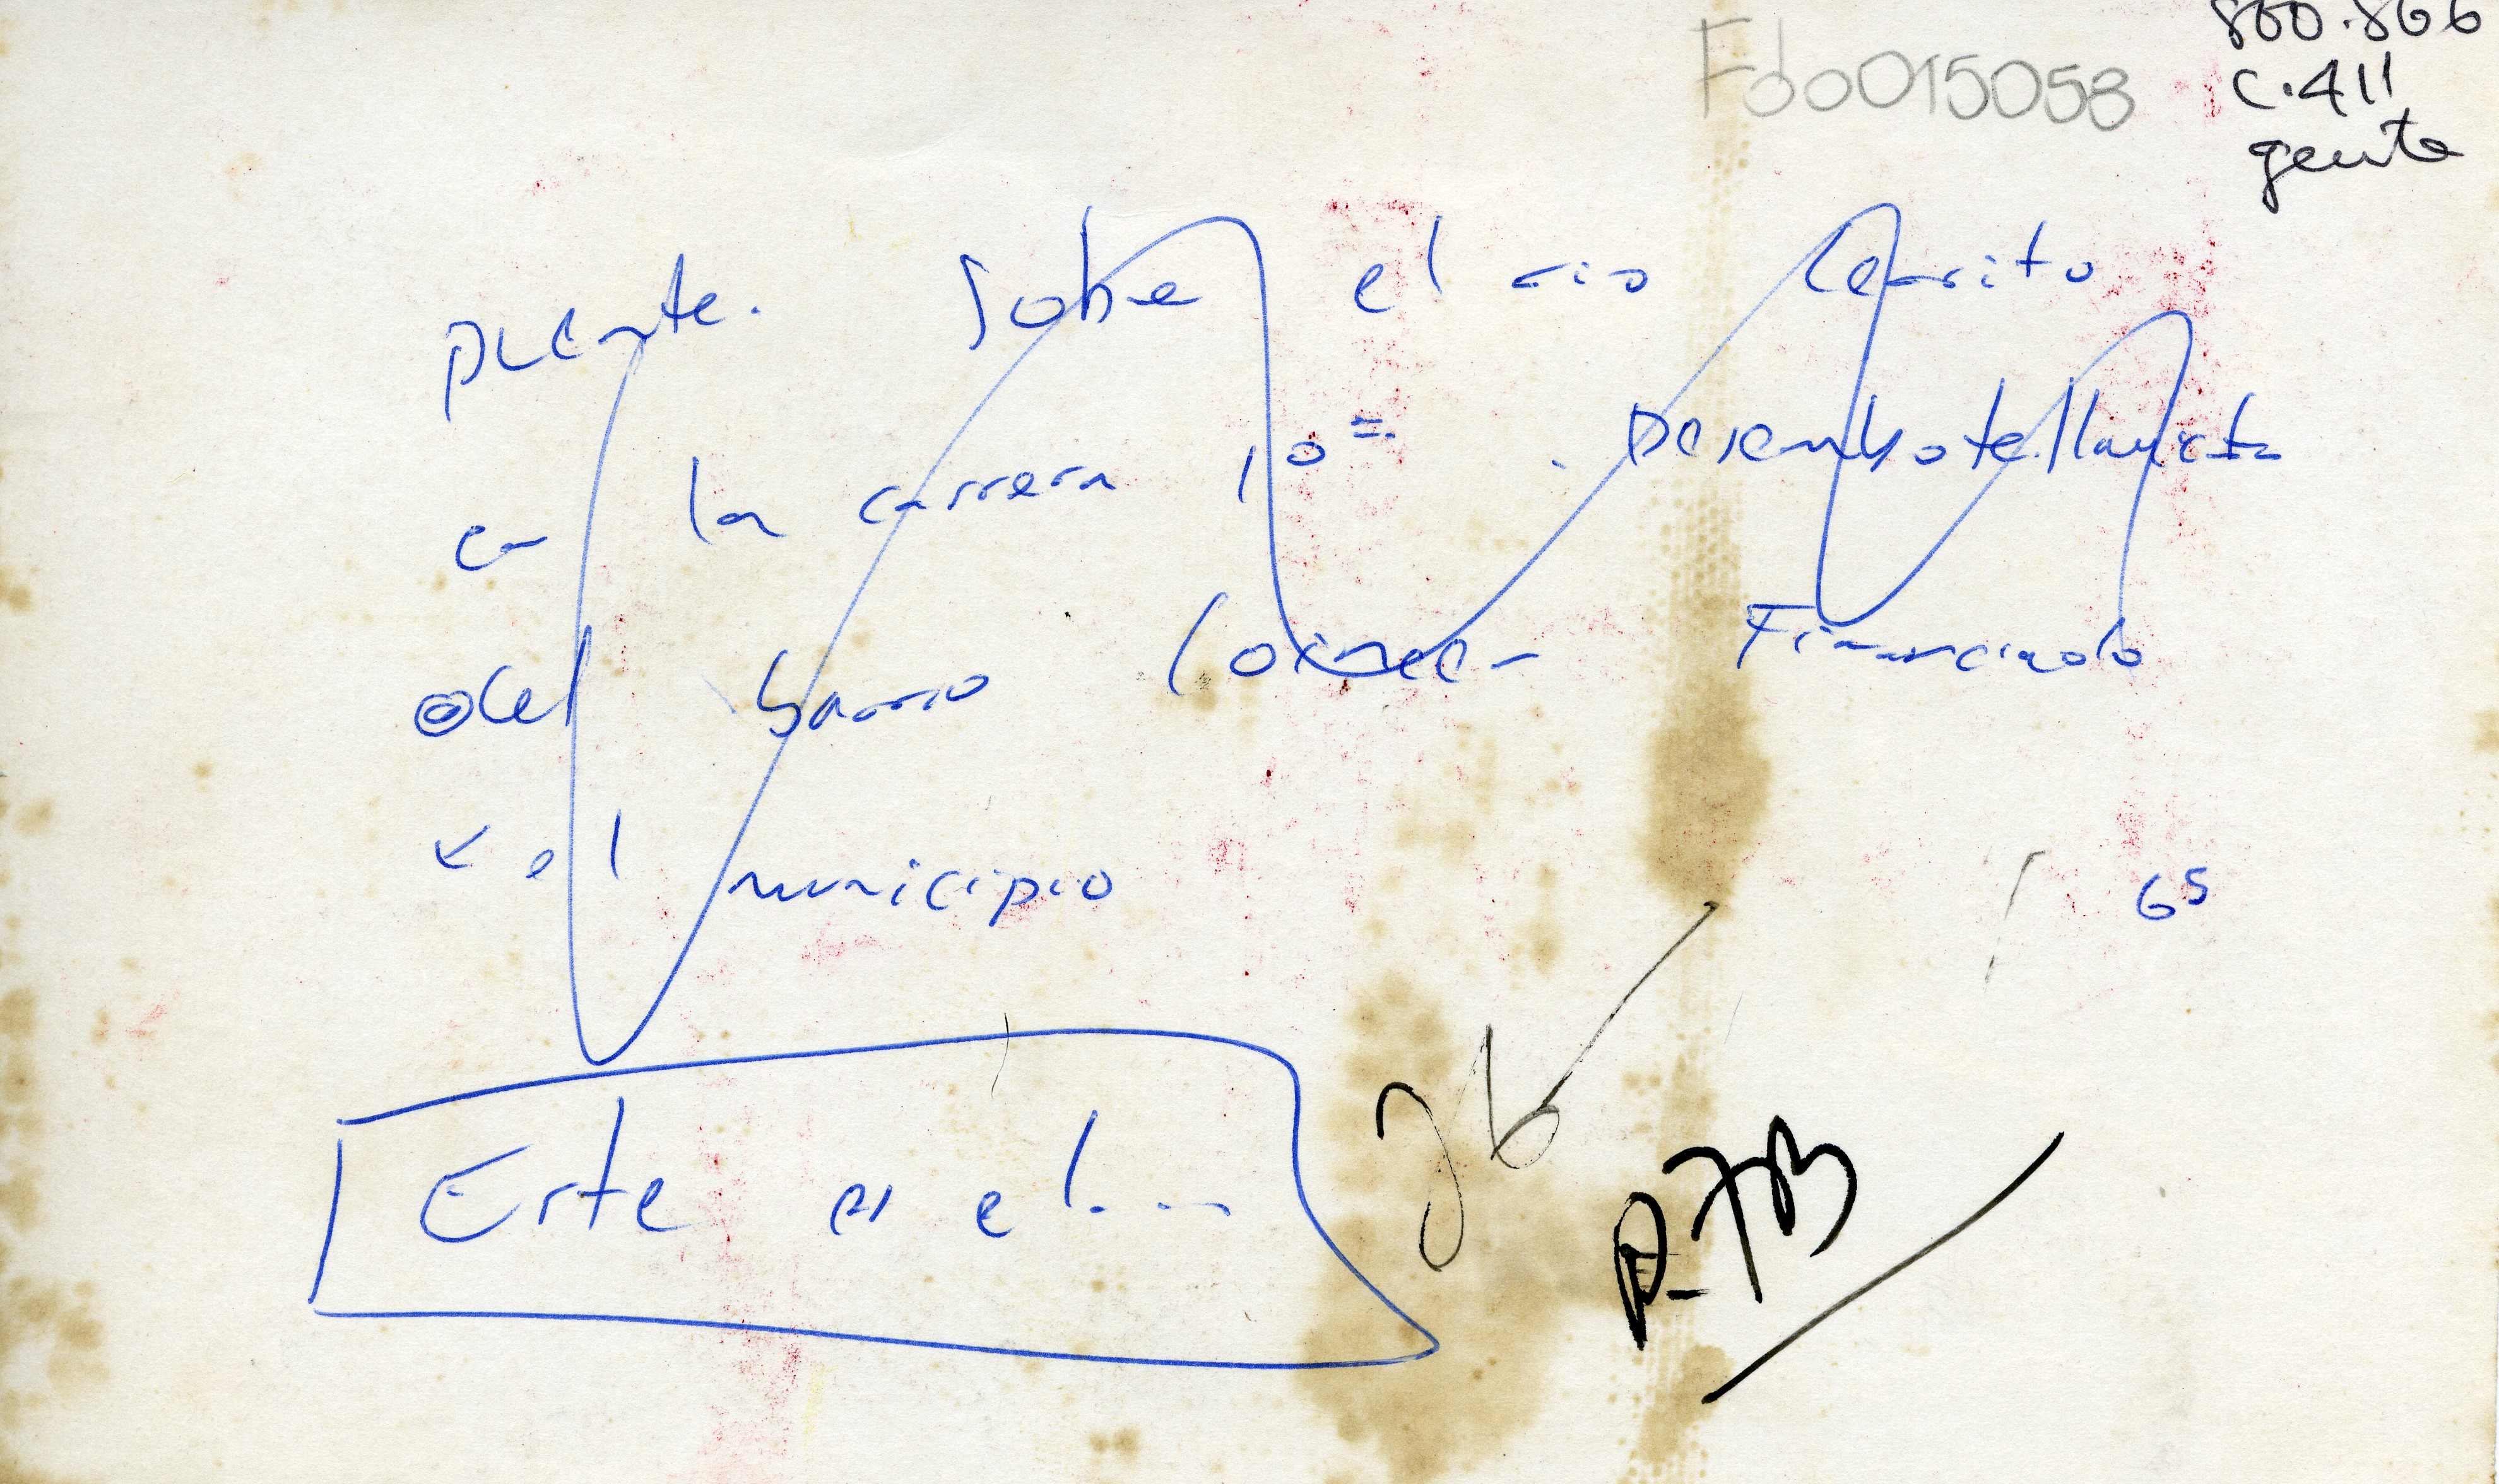 860.866
Fdo015058
c.411
gente
puente. Sobre el rio Cerrito
en la carrera 10ª. Desembotellamiento
del barrio Financiado
x el municipio
65
Este es el...
26
P-73